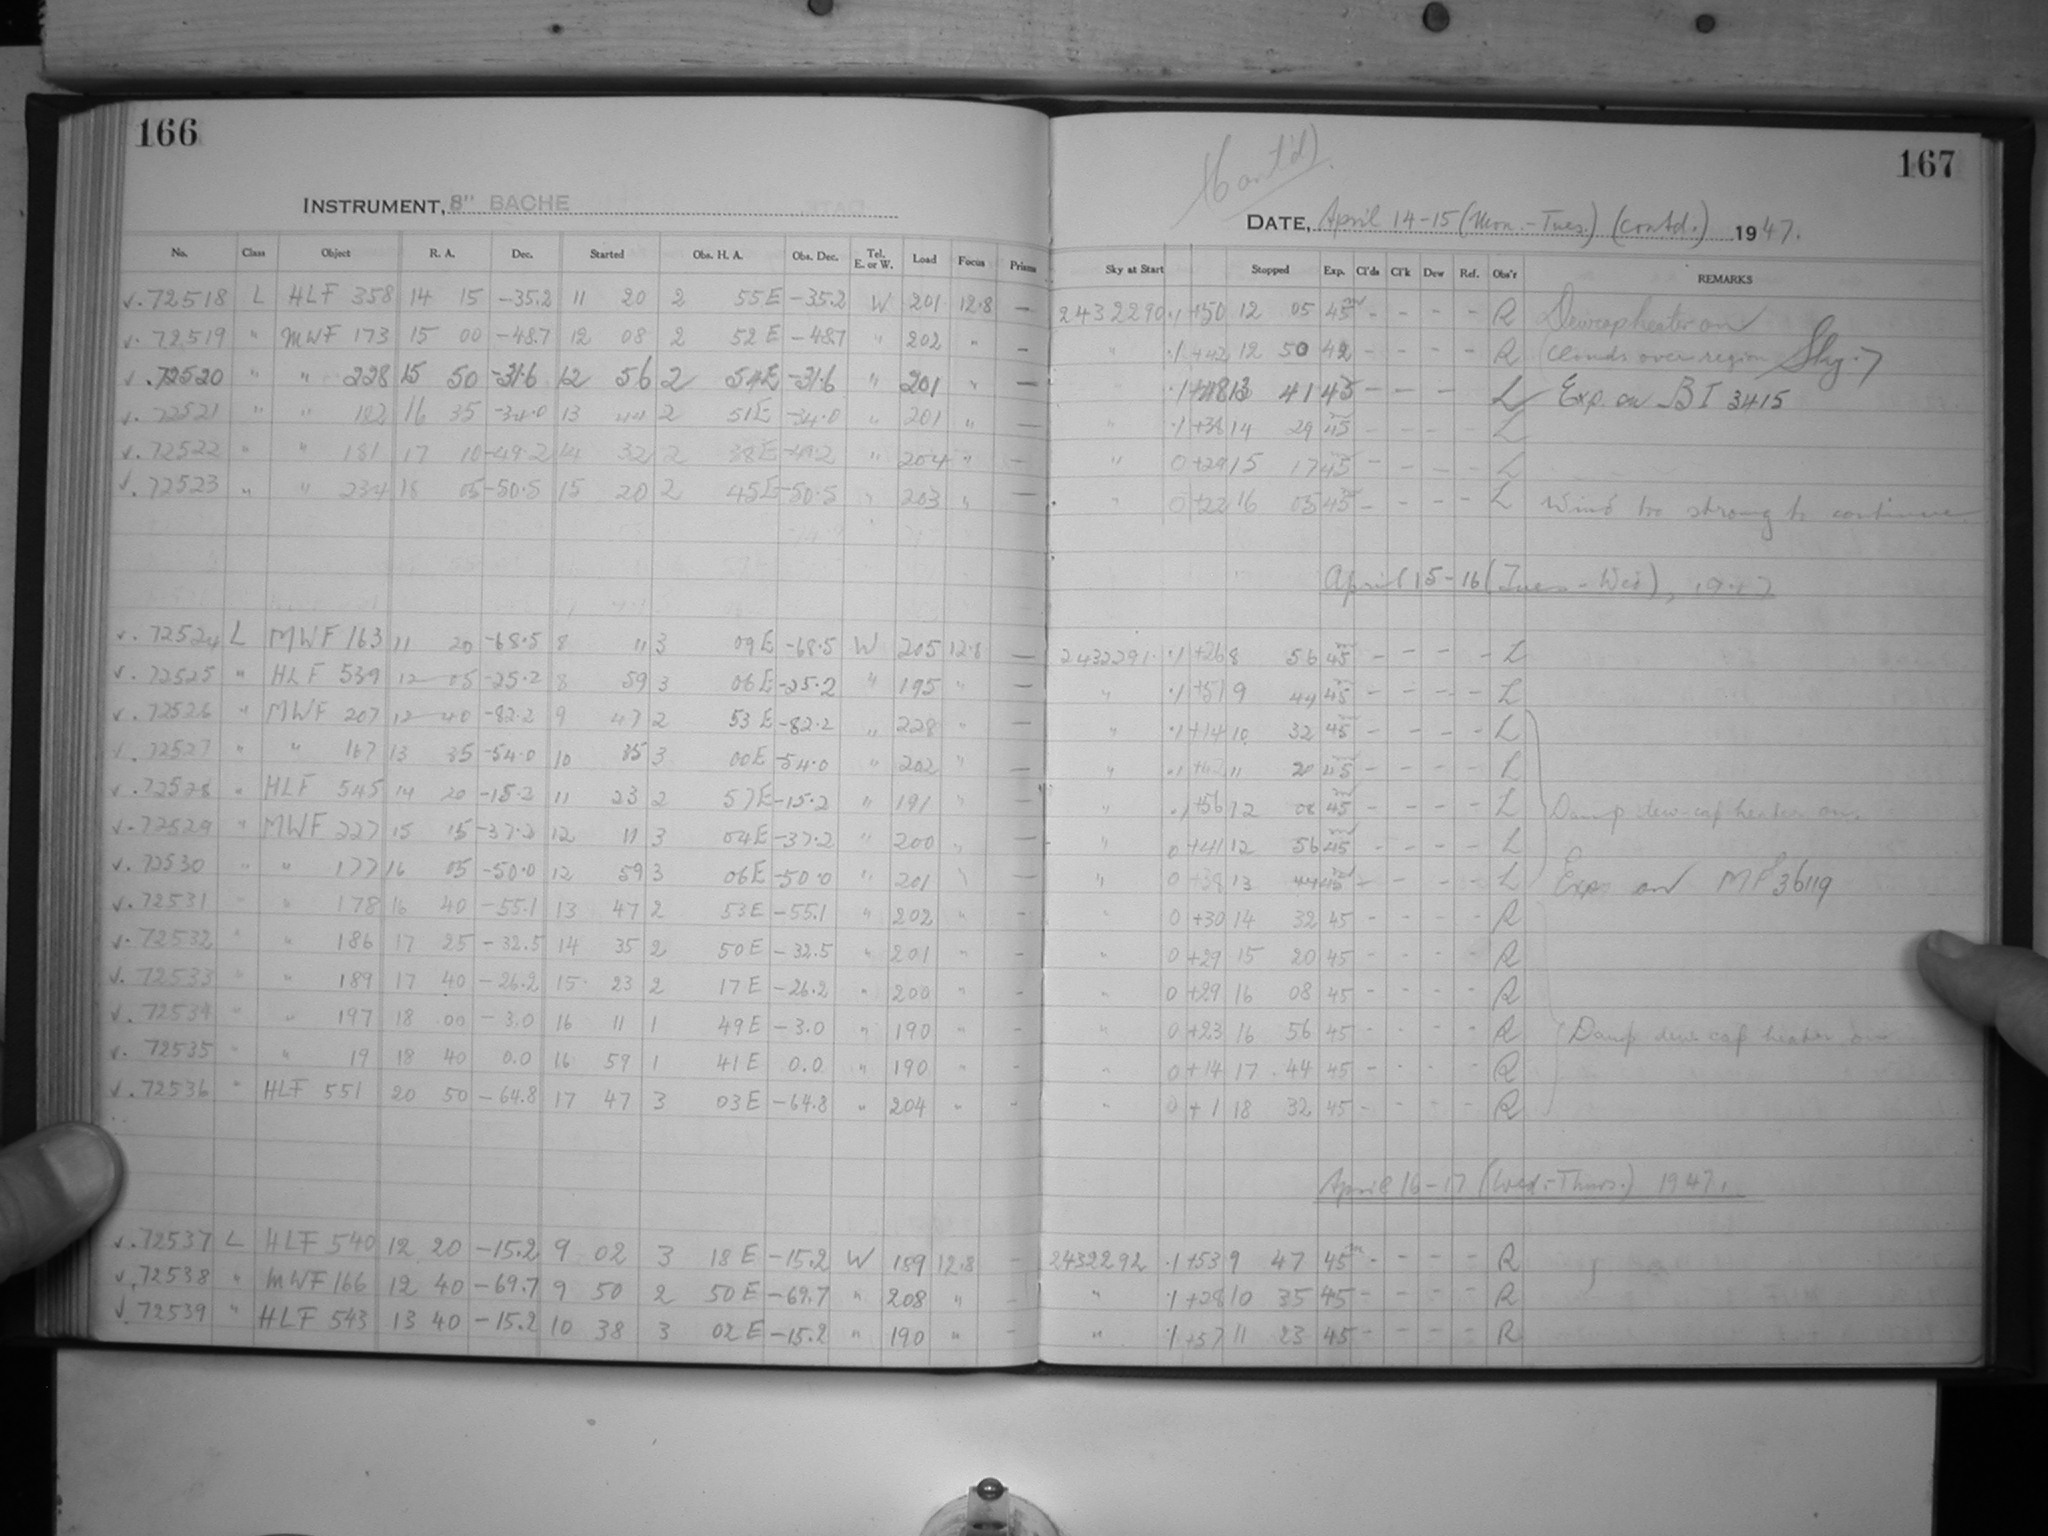 166
INSTRUMENT, 8" BACHE
No. Class Object R. A. Dec. Started Obs. H. A. Obs. Dec. Tel. E. or W. Load Focus Prisms
v. 72518 L HLF 358 14 15 -35.2 11 20 2 55E -35.2 W 201 12.8 —
v. 72519 " MWF 173 15 00 -48.7 12 08 2 52E -48.7 " 202 " —
v. 72520 " " 228 15 50 -31.6 12 56 2 54E -31.6 " 201 " —
v. 72521 " " 182 16 35 -34.0 13 44 2 51E -34.0 " 201 " —
v. 72522 " " 181 17 10 -49.2 14 32 2 38E -49.2 " 204 " —
v. 72523 " " 234 18 05 -50.5 15 20 2 45E -50.5 " 203 " —
v. 72524 L MWF 163 11 20 -68.5 8 11 3 09E -68.5 W 205 12.8 —
v. 72525 " HLF 539 12 05 -25.2 8 59 3 06E -25.2 " 195 " —
v. 72526 " MWF 207 12 40 -82.2 9 47 2 53E -82.2 " 228 " —
v. 72527 " " 167 13 35 -54.0 10 35 3 00E -54.0 " 202 " —
v. 72528 " HLF 545 14 20 -15.2 11 23 2 57E -15.2 " 191 " —
v. 72529 " MWF 227 15 15 -37.2 12 11 3 04E -37.2 " 200 " —
v. 72530 " " 177 16 05 -50.0 12 59 3 06E -50.0 " 201 " —
v. 72531 " " 178 16 40 -55.1 13 47 2 53E -55.1 " 202 " -
v. 72532 " " 186 17 25 -32.5 14 35 2 50E -32.5 " 201 " -
v. 72533 " " 189 17 40 -26.2 15 23 2 17E -26.2 " 200 " -
v. 72534 " " 197 18 00 -3.0 16 11 1 49E -3.0 " 190 " -
v. 72535 " " 19 18 40 0.0 16 59 1 41E 0.0 " 190 " -
v. 72536 " HLF 551 20 50 -64.8 17 47 3 03E -64.8 " 204 " -
v. 72537 L HLF 540 12 20 -15.2 9 02 3 18E -15.2 W 189 12.8 -
v. 72538 " MWF 166 12 40 -69.7 9 50 2 50E -69.7 " 208 " -
v. 72539 " HLF 543 13 40 -15.2 10 38 3 02E -15.2 " 190 " -
167
(Contd)
DATE, April 14-15 (Mon.-Tues.) (contd.) 1947.
Sky at Start Stopped Exp. Cl'ds Cl'k Dew Ref. Obs'r REMARKS
2432290 .1 +50 12 05 45m - - - - R Dewcap heater on
" .1 +42 12 50 42 - - - - R Clouds over region Sky .7
.1 +48 13 41 45 - - - L Exp. on BI 3415
" .1 +38 14 29 45 - - - - L
" 0 +29 15 17 45 - - - - L
" 0 +22 16 05 45 - - - - L Wind too strong to continue
April 15-16 (Tues-Wed), 1947
2432291 .1 +26 8 56 45m - - - - L
" .1 +51 9 44 45 - - - - L
" .1 +14 10 32 45 - - - - L
" .1 +42 11 20 45 - - - - L
" .1 +56 12 08 45 - - - - L Damp dew-cap heater on.
" 0 +41 12 56 45 - - - - L
" 0 +38 13 44 45 - - - - L Exp. on MF 36119
" 0 +30 14 32 45 - - - - R
" 0 +29 15 20 45 - - - - R
" 0 +29 16 08 45 - - - - R
" 0 +23 16 56 45 - - - - R Damp dew cap heater on
" 0 +14 17 44 45 - - - - R
" 0 +1 18 32 45 - - - - R
April 16-17 (Wed.-Thurs.) 1947.
2432292 .1 +53 9 47 45m - - - - R
" .1 +28 10 35 45 - - - - R
" .1 +57 11 23 45 - - - - R